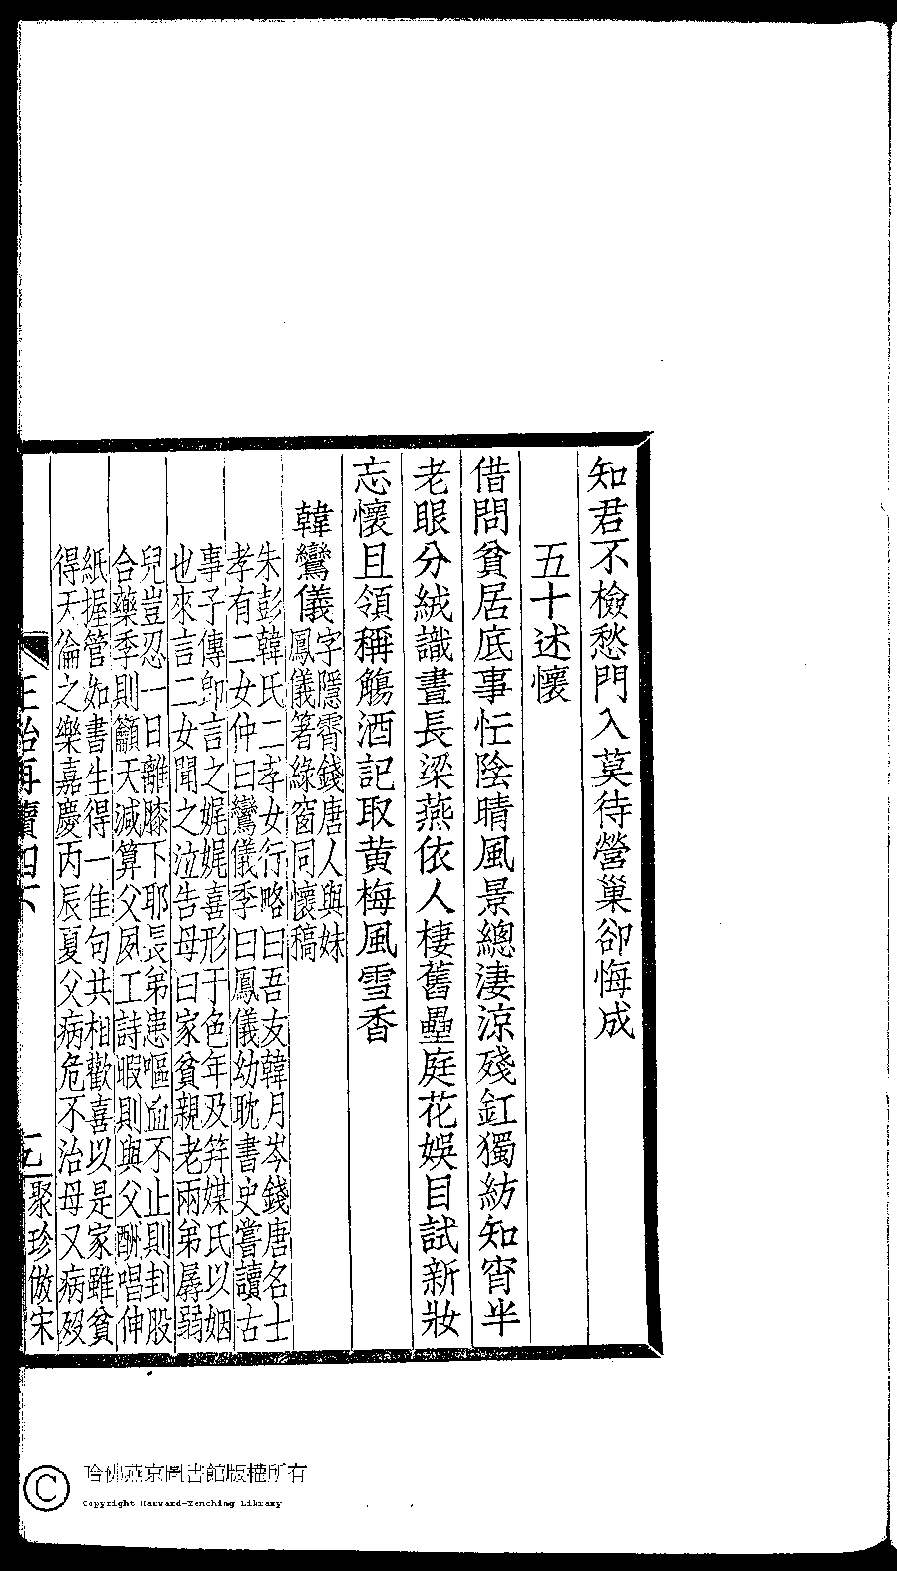 知君不檢愁門入莫待營巢卻悔成
五十述懷
借問貧居底事忙陰晴風景總淒涼殘釭獨紡知宵半
老眼分絨識晝長梁燕依人棲舊壘庭花娛目試新妝
忘懷且領稱觴酒記取黄梅風雪香
韓鸞儀
字隱霄錢唐人與妹
鳳儀箸綠窗同懷稿
朱彭韓氏二孝女行略曰吾友韓月岑錢唐名士
孝有二女仲曰鸞儀季曰鳳儀幼耽書史嘗讀古
事子傳卽言之娓娓喜形于色年及笄媒氏以姻
也來言二女聞之泣告母曰家貧親老兩弟孱弱
兒豈忍一日離膝下耶長弟患嘔血不止則刲股
合藥季則籲天減算父夙工詩暇則與父酬唱伸
紙握管如書生得一佳句共相歡喜以是家雖貧
得天倫之樂嘉慶丙辰夏父病危不治母又病歿
聚珍倣宋
哈佛燕京圖書館版權所有
Copyright Harvard-Yenching Library